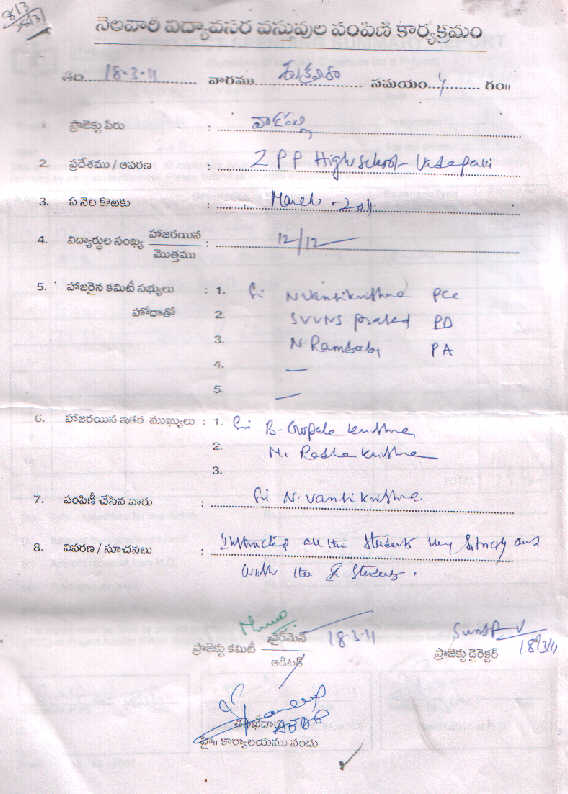 18/3
నెలవారీ విద్యావసర వస్తువుల పంపిణి కార్యక్రమం
తేది 18-3-11 వారము శుక్రవారం సమయం గం॥
1. ప్రాజెక్టు పేరు :
2. ప్రదేశము / ఆవరణ : ZPP High School - Vadapalli
3. ఏ నెల కొఱకు : March - 2011
4. విద్యార్థుల సంఖ్య హాజరయిన / మొత్తము : 12/12
5. హాజరైన కమిటీ సభ్యులు హోదాతో : 1. Sri N. Vamsi Krishna PCC
2. SVVNS Prasad PD
3. N Rambabu PA
4. —
5. —
6. హాజరయిన ఇతర ముఖ్యులు : 1. Sri B. Gopala Krishna
2. M. Radha Krishna
3.
7. పంపిణీ చేసిన వారు : Sri N. Vamsi Krishna
8. వివరణ / సూచనలు : Instructed all the Students very Strictly and
with the Students.
ప్రాజెక్టు కమిటీ చైర్మెన్ 18-3-11
ఆడిటర్
ప్రాజెక్టు డైరెక్టర్ 18/3/11
కార్యాలయము నందు